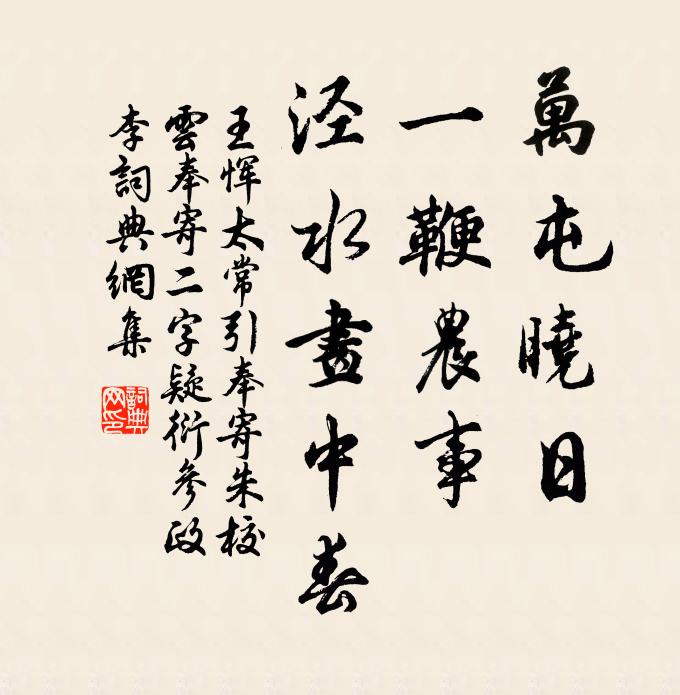 萬屯曉日
一鞭農事
涇水畫中春
王惲太常引奉寄朱校
雲奉寄二字疑衍參政
李詞典網集
詞典网印